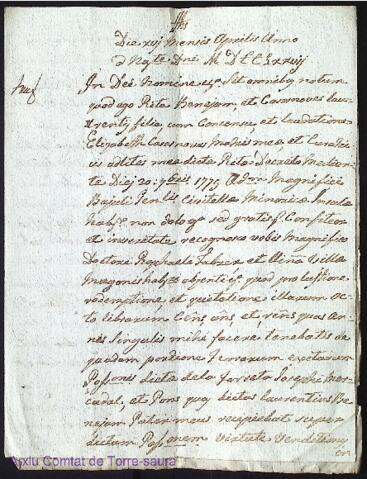 Die xvij mensis Aprilis Anno
a Nate Dni M DCCLxxvij
In Dei Nomine Sit omnibus notum
quod ego Rita Benejam, et Casasnovas Lau-
rentij filia cum Consensu, et laudatione
Elizabeth Casasnovas Matris mea et Curatri-
cis adlites mea dicta Rita Decreto Median-
te Diej 20: 7bris 1775
Bajuli Genlis Civitella Minorica Insula
habs non dolo sed gratis Confiteor
et in veritate recognosco vobis Magnifico
Doctore Raphaele Febrer et Villa
Magonis habs quod pro luitione
redemptione et quitatione illarum oc-
to librarum Cens ans, et rens quas an-
nis singulis mihi facere tenebatis de
quadam portione terrarum
Possonis dicta dela Torreta Josephs Mer-
cadal, et Pons quas dictus Laurentius Be-
nejam Pater meus recipiebat super
dictam Possonem virtute Venditionis
en
Arxiu Comtat de Torre-saura